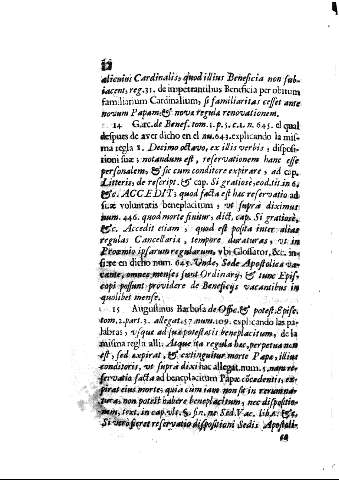 alicuius Cardinalis, quod illius Beneficia non sub-
iacent, reg. 31. de impetrantibus Beneficia per obitum
familiarium Cardinalium, si familiaritas cesset ante
novum Papam, & nova regula renovationem.
14 Garc. de Benef. tom. 1. p. 5. c. 1. n. 645. el qual
despues de aver dicho en el nu. 643. explicando la mis-
ma regla 8. Decimo octavo, ex illis verbis, disposi-
tioni suæ; notandum est, reservationem hanc esse
personalem, & sic cum conditore expirare, ad cap.
Litteris, de rescript. & cap. Si gratiosè, eod. tit. in 6.
&c. ACCEDIT, quod facta est hac reservatio ad
suæ voluntatis beneplacitum, ut suprà diximus
num. 446. quod morte finitur, dict. cap. Si gratiosè,
&c. Accedit etiam, quod est posita inter alias
regulas Cancellaria, tempore duraturas, ut in
Proœmio ipsarum regularum, ubi Glossator, &c. in-
fiere en dicho num. 645. Unde, Sede Apostolica va-
cante, omnes menses sunt Ordinarÿ, & tunc Epis-
copi possunt providere de Beneficÿs vacantibus in
quolibet mense.
15 Augustinus Barbosa de Offic. & potest. Episc.
tom. 2. part. 3. allegat. 57. num. 109. explicando las pa-
labras, usque ad suæ potestatis beneplacitum, de la
misma regla alli: Atque ita regula hac, perpetua non
est, sed expirat, & extinguitur morte Papa, illius
conditoris, ut suprà dixi hac allegat. num. 1. nam re-
servatio facta ad beneplacitum Papæ concedentis, ex-
pirat eius morte; quia cum iam non sit in rerum na-
tura, non potest habere beneplacitum, nec dispositio-
nem, text. in cap. ult. & fin. ne Sed. Vac. lib. 6. &c.
Si verò fieret reservatio dispositioni Sedis Apostoli-